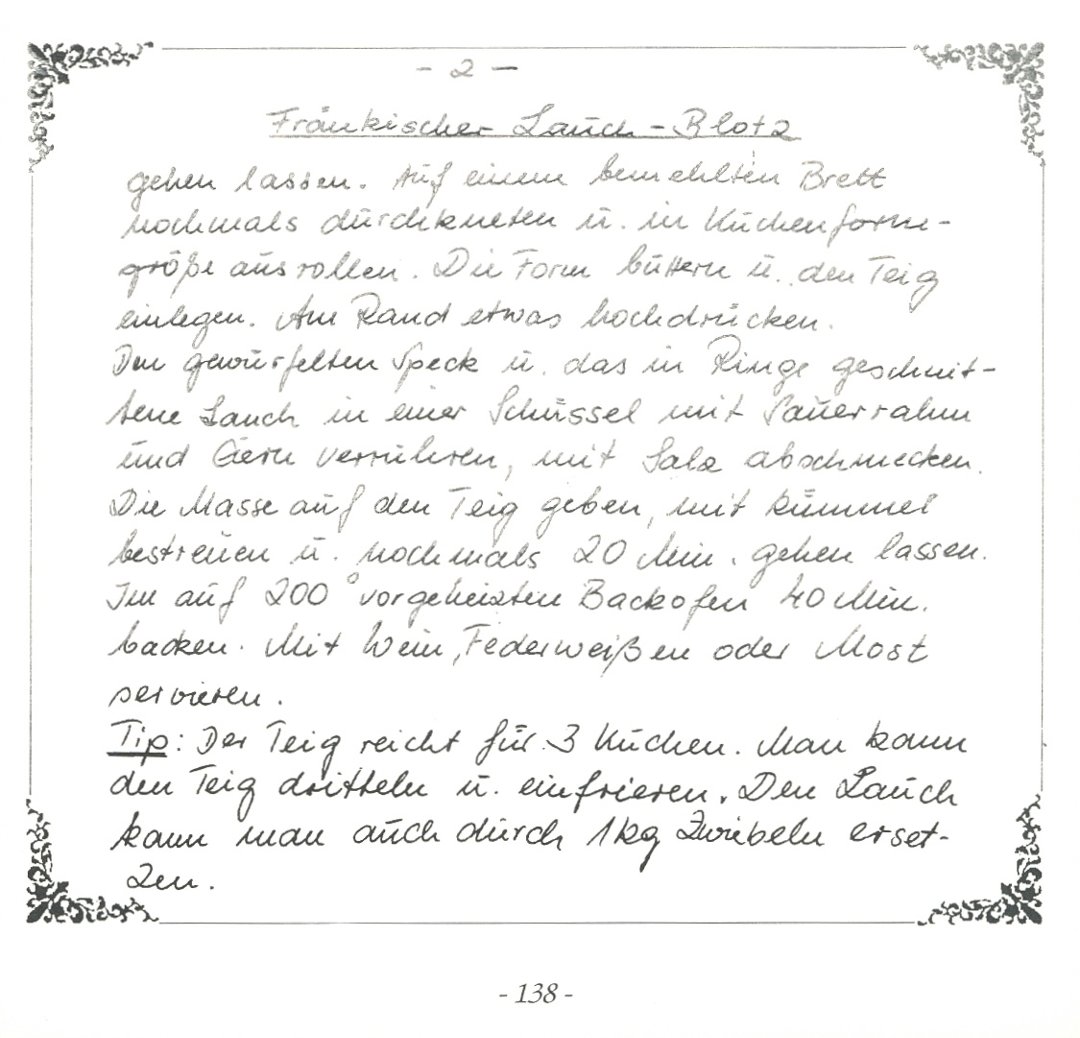 - 2 -
Fränkischer Lauch-Blotz
gehen lassen. Auf einem bemehlten Brett
nochmals durchkneten u. in Kuchenform-
größe ausrollen. Die Form buttern u. den Teig
einlegen. Am Rand etwas hochdrücken.
Den gewürfelten Speck u. das in Ringe geschnit-
tene Lauch in einer Schüssel mit Sauerrahm
und Eiern verrühren, mit Salz abschmecken.
Die Masse auf den Teig geben, mit Kümmel
bestreuen u. nochmals 20 Min. gehen lassen.
Im auf 200° vorgeheizten Backofen 40 Min.
backen. Mit Wein, Federweißen oder Most
servieren.
Tip: Der Teig reicht für 3 Kuchen. Man kann
den Teig dritteln u. einfrieren. Den Lauch
kann man auch durch 1kg Zwiebeln erset-
zen.
- 138 -